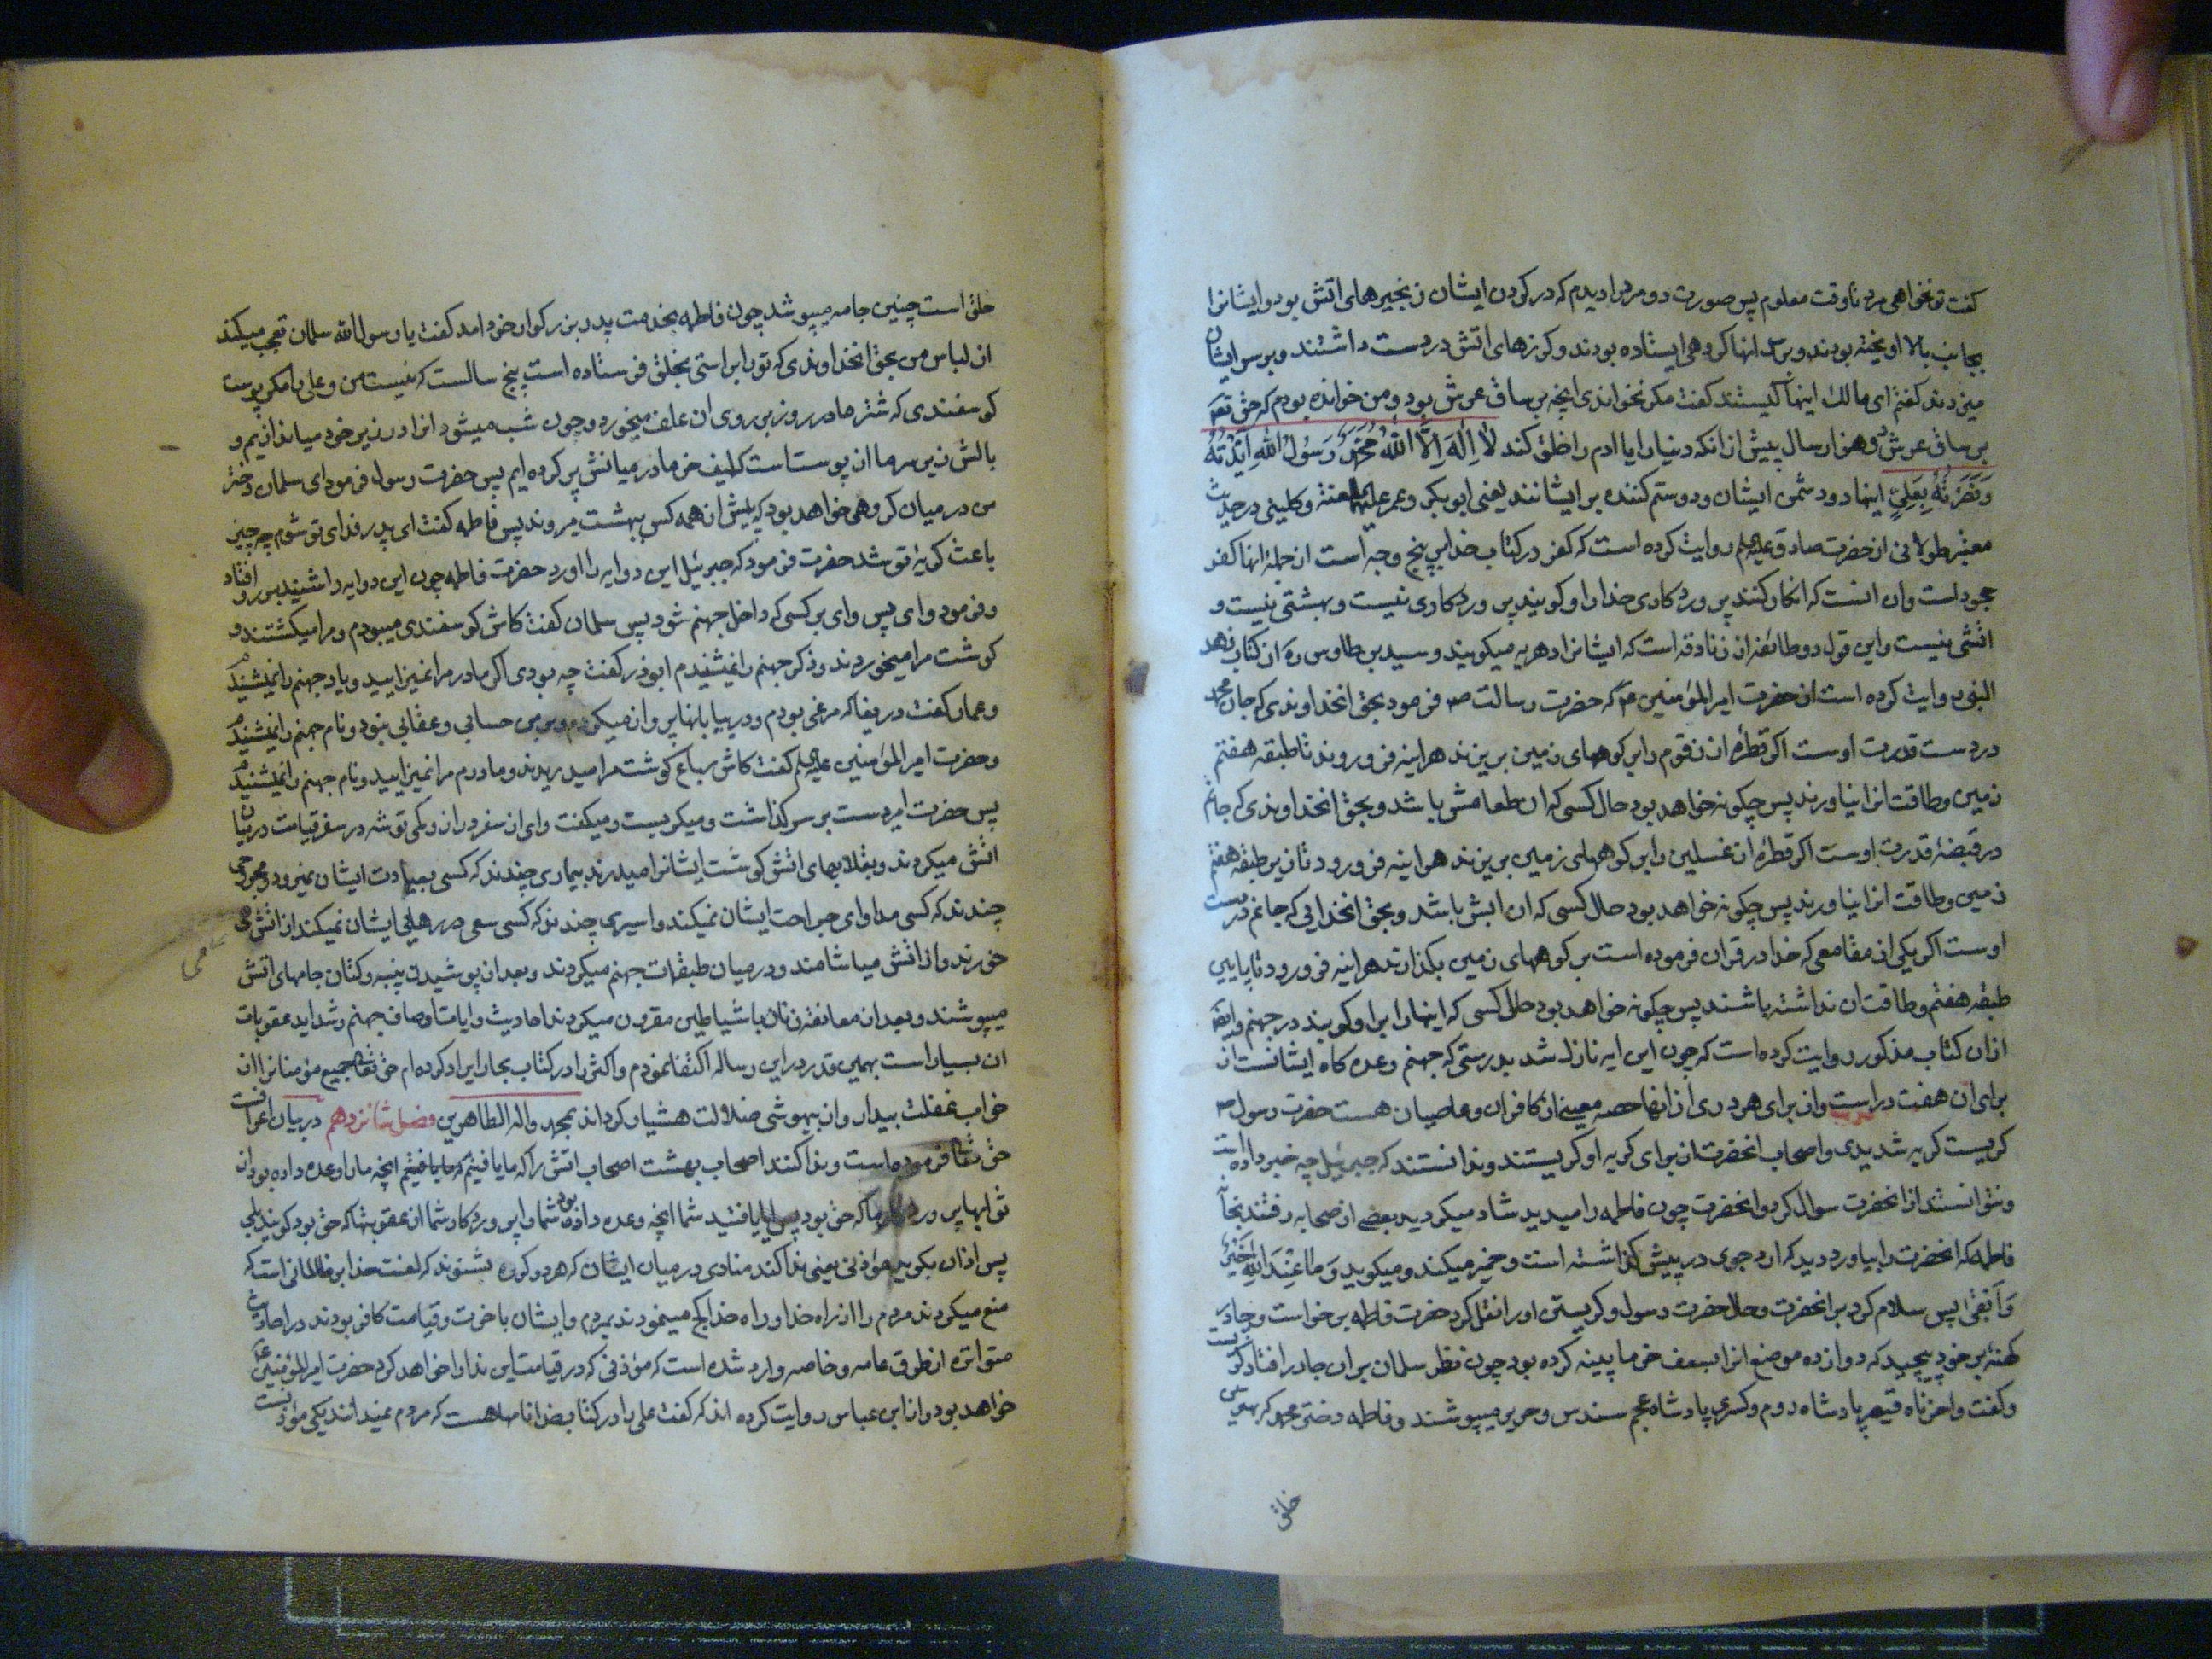 كفت تو نخواهی مرد تا وقت معلوم پس صورت دو مرد را دیدم که در کردن ایشان زنجیرهای اتش بود و ایشانرا
بجانب بالا اویخته بودند و بر سر انها کروهی ایستاده بودند و کرزهای اتش در دست داشتند و بر سر ایشان
میزدند کفتم ای مالک اینها کیستند کفت مکر نخواندی انچه بر ساق عرش بود و من خوانده بودم که حق تعم
بر ساق عرش دو هزار سال پیش از انکه دنیا را یا ادم را خلق کند لا اِلٰهَ اِلَّا اللهُ مُحَمَّدٌ رَسُولُ اللهِ اَیَّدْتُهُ
وَنَصَرْتُهُ بِعَلِیٍّ اینها دو دشمن ایشان و دو ستم کننده بر ایشانند یعنی ابو بکر و عمر علیهما لعنة و کلینی در حدیث
معتبر طولانی از حضرت صادق علیه‌السلم روایت کرده است که کفر در کتاب خدا بر پنج وجه است از جملهٔ انها کفر
جحود است و ان انست که انکار کنند پرورد کاری خدا را و کویند پرورد کاری نیست و بهشتی نیست و
اتشی نیست و این قول دو طائفه از زنادقه است که ایشانرا دهریه میکویند و سید بن طاوس ره از کتاب زهد
النبی روایت کرده است از حضرت امیر المؤمنین ع که حضرت رسالت ص فرمود بحق انخداوندی که جان محمد
در دست قدرت اوست اکر قطرهٔ از زقوم را بر کوههای زمین بریزند هراینه فرو روند تا طبقه هفتم
زمین و طاقت انرا نیاورند پس چکونه خواهد بود حال کسی که ان طعامش باشد و بحق انخداوندی که جانم
در قبضهٔ قدرت اوست اکر قطرهٔ از غسلین را بر کوههای زمین بریزند هراینه فرو رود تا زیر طبقه هفتم
زمین و طاقت انرا نیاورند پس چکونه خواهد بود حال کسی که ان ابش باشد و بحق انخدایی که جانم در دست
اوست اکر یکی از مقامعی که خدا در قران فرموده است بر کوههای زمین بکذارند هراینه فرو رود تا پایین
طبقه هفتم و طاقت ان نداشته باشند پس چکونه خواهد بود حال کسی که اینها را بر او کوبند در جهنم و ایضا
از ان کتاب مذکور روایت کرده است که چون این ایه نازل شد بدرستی که جهنم وعده کاه ایشانست از
برای ان هفت در است و از برای هر دری از انها حصه معینی از کافران و عاصیان هست حضرت رسول ص
کریست کریه شدیدی و اصحاب انحضرت از برای کریه او کریستند و ندانستند که جبرئیل چه خبر داده است
و نتوانستند از انحضرت سوال کرد و انحضرت چون فاطمه را میدید شاد میکردید بعضی از صحابه رفتند بخانه
فاطمه که انحضرت را بیاورد دید که ارد جوی در پیش کذاشته است و خمیر میکند و میکوید وَ مَا عِنْدَ اللهِ خَیْرٌ
وَ اَبْقٰی پس سلام کرد بر انحضرت و حال حضرت رسول و کریستن او را نقل کرد حضرت فاطمه برخواست و چادر
کهنهٔ بر خود پیچید که دوازده موضع انرا بسعف خرما پینه کرده بود چون نظر سلمان بر ان چادر افتاد کریست
و کفت واحزناه قیصر پادشاه روم و کسری پادشاه عجم سندس و حریر میپوشند و فاطمه دختر محمد که بهترین
خلق
خلق است چنین جامه میپوشد چون فاطمه بخدمت پدر بزرکوار خود امد کفت یا رسول الله سلمان تعجب میکند
از لباس من بحق انخداوندی که تو را براستی بخلق فرستاده است پنج سالست که نیست من و علی را مکر پوست
کوسفندی که شتر ما در روز بر روی ان علف میخورد و چون شب میشود انرا در زیر خود میاندازیم و
بالش زیر سر ما از پوست است که لیف خرما در میانش پر کرده ایم پس حضرت رسول فرمود ای سلمان دختر
من در میان کروهی خواهد بود که پیش از همه کس ببهشت میروند پس فاطمه کفت ای پدر فدای تو شوم چه چیز
باعث کریهٔ تو شد حضرت فرمود که جبرئیل این دو ایه را اورد حضرت فاطمه چون این دو ایه را شنید بر رو افتاد
و فرمود وای پس وای بر کسی که داخل جهنم شود پس سلمان کفت کاش کوسفندی میبودم و مرا میکشتند و
کوشت مرا میخوردند و ذکر جهنم را نمیشنیدم ابوذر کفت چه بودی اکر مادر مرا نمیزایید و یاد جهنم را نمیشنیدم
و عمار کفت دریغا که مرغی بودم و در بیابانها پرواز میکردم و بر من حسابی و عقابی نبود و نام جهنم را نمیشنیدم
و حضرت امیر المؤمنین علیه‌السلم کفت کاش سباع کوشت مرا میدریدند و مادرم مرا نمیزایید و نام جهنم را نمیشنیدم
پس حضرت امیر دست بر سر کذاشت و میکریست و میکفت وای از سفر دراز و کمی توشه در سفر قیامت در میان
اتش میکردند و بقلابهای اتش کوشت ایشانرا میدرند بیماری چندند که کسی بعیادت ایشان نمیرود و مجروحی
چندند که کسی مداوای جراحت ایشان نمیکند و اسیری چندند که کسی سعی در رهایی ایشان نمیکند از اتش می
خورند و از اتش میاشامند و در میان طبقات جهنم میکردند و بعد از پوشیدن پنبه و کتان جامهای اتش
میپوشند و بعد از معانقه زنان با شیاطین مقرون میکردند احادیث و ایات اوصاف جهنم و شداید عقوبات
ان بسیار است بهمین قدر در این رساله اکتفا نمودم و اکثر را در کتاب بحار ایراد کرده ام حق تعالی جمیع مؤمنانرا از
خواب غفلت بیدار و از بیهوشی ضلالت هشیار کرداند بمحمد و اله الطاهرین فصل شانزدهم در بیان اعراف
حق تعالی فرموده است و ندا کنند اصحاب بهشت اصحاب اتش را که ما یافتیم انچه ما را وعده داده بود از
ثوابها پروردکار ما که حق بود پس ایا یافتید شما انچه وعده داده بود شما را پروردکار شما از عقوبتها که حق بود کویند بلی
پس اذان بکوید مؤذنی یعنی ندا کند منادی در میان ایشان که هر دو کروه بشنوند که لعنت خدا بر ظالمانی است که
منع میکردند مردم را از راه خدا و راه خدا را کج مینمودند بمردم و ایشان باخرت و قیامت کافر بودند در احادیث
متواتره از طرق عامه و خاصه وارد شده است که مؤذنی که در قیامت این ندا را خواهد کرد حضرت امیر المؤمنین ع
خواهد بود و از ابن عباس روایت کرده اند که کفت علی را در کتاب خدا نامها هست که مردم نمیدانند یکی مؤذنست